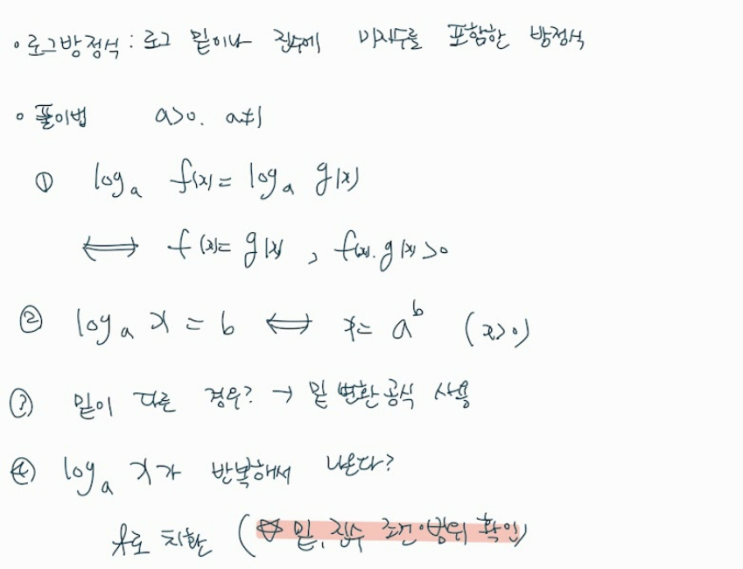 • 로그방정식 : 로그 밑이나 진수에 미지수를 포함한 방정식
• 풀이법 a>0. a≠1
① log_a f(x) = log_a g(x)
⟺ f(x) = g(x) , f(x). g(x) > 0
② log_a x = b ⟺ x = a^b (x>0)
③ 밑이 다른 경우? → 밑 변환 공식 사용
④ log_a x가 반복해서 나온다?
t로 치환 (☆ 밑, 진수 조건 범위 확인)